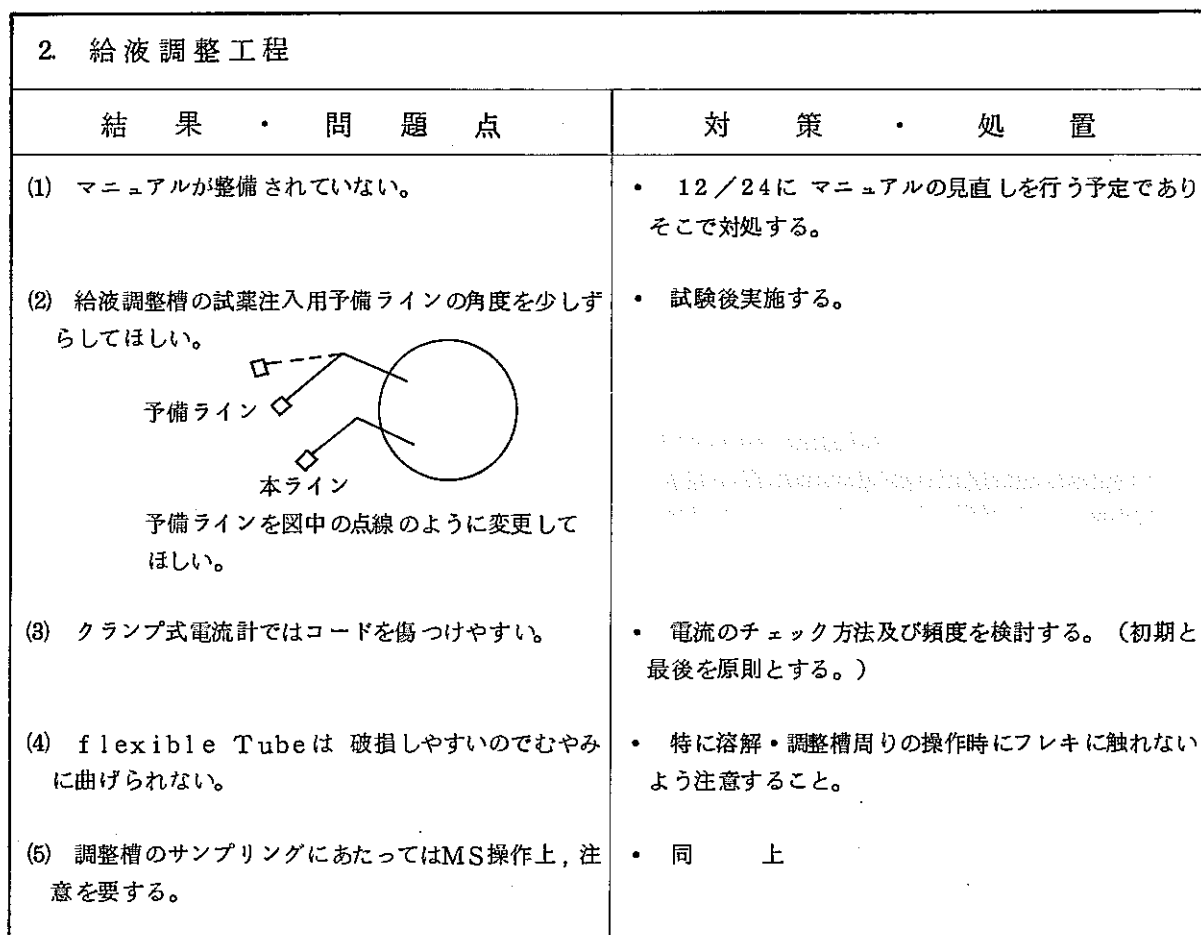 2. 給液調整工程
結果・問題点
対策・処置
(1) マニュアルが整備されていない。
・ 12/24に マニュアルの見直しを行う予定であり
そこで対処する。
(2) 給液調整槽の試薬注入用予備ラインの角度を少しず
らしてほしい。
・ 試験後実施する。
予備ライン
本ライン
予備ラインを図中の点線のように変更して
ほしい。
(3) クランプ式電流計ではコードを傷つけやすい。
・ 電流のチェック方法及び頻度を検討する。(初期と
最後を原則とする。)
(4) flexible Tubeは 破損しやすいのでむやみ
に曲げられない。
・ 特に溶解・調整槽周りの操作時にフレキに触れない
よう注意すること。
(5) 調整槽のサンプリングにあたってはMS操作上,注
意を要する。
・ 同 上